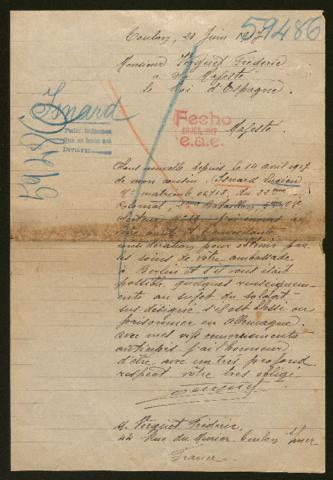 Toulon, 21 Juin 1917
59486
Monsieur Verguet Fréderic
à Sa Majesté
le Roi d'Espagne.
Isnard
59486
Fecho
e.a.e.
Majesté
Sans nouvelle depuis le 16 avril 1917
de mon cousin, Isnard Lucien
Nle matricule du 22ème
Colonial
Secteur
votre
considération pour obtenir par
les soins de votre ambassade
à Berlin et s'il vous était
possible, quelques renseignements
au sujet du soldat
sus désigné, s'il est blessé ou
prisonnier en Allemagne.
Avec mes vifs remerciements
anticipés j'ai l'honneur
d'être, avec un très profond
respect votre très obligé.
Verguet
M. Verguet Fréderic,
44 Rue du Murier Toulon Var
France.